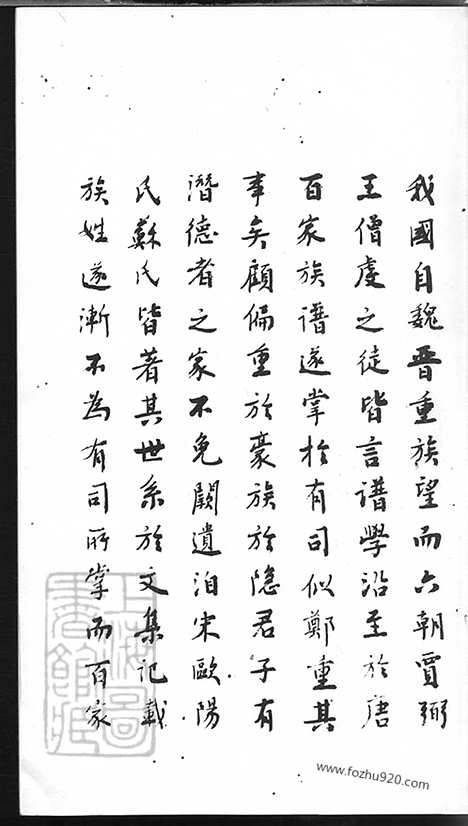 我國自魏晉重族望而六朝賈弼
王僧虔之徒皆言譜學沿至於唐
百家族譜遂掌於有司似鄭重其
事矣顧偏重於豪族於隐君子有
潛德者之家不免闕遺洎宋歐陽
氏蘇氏皆著其世系於文集記載
族姓遂漸不為有司所掌而百家
上海圖書館藏
www.fozhu920.com